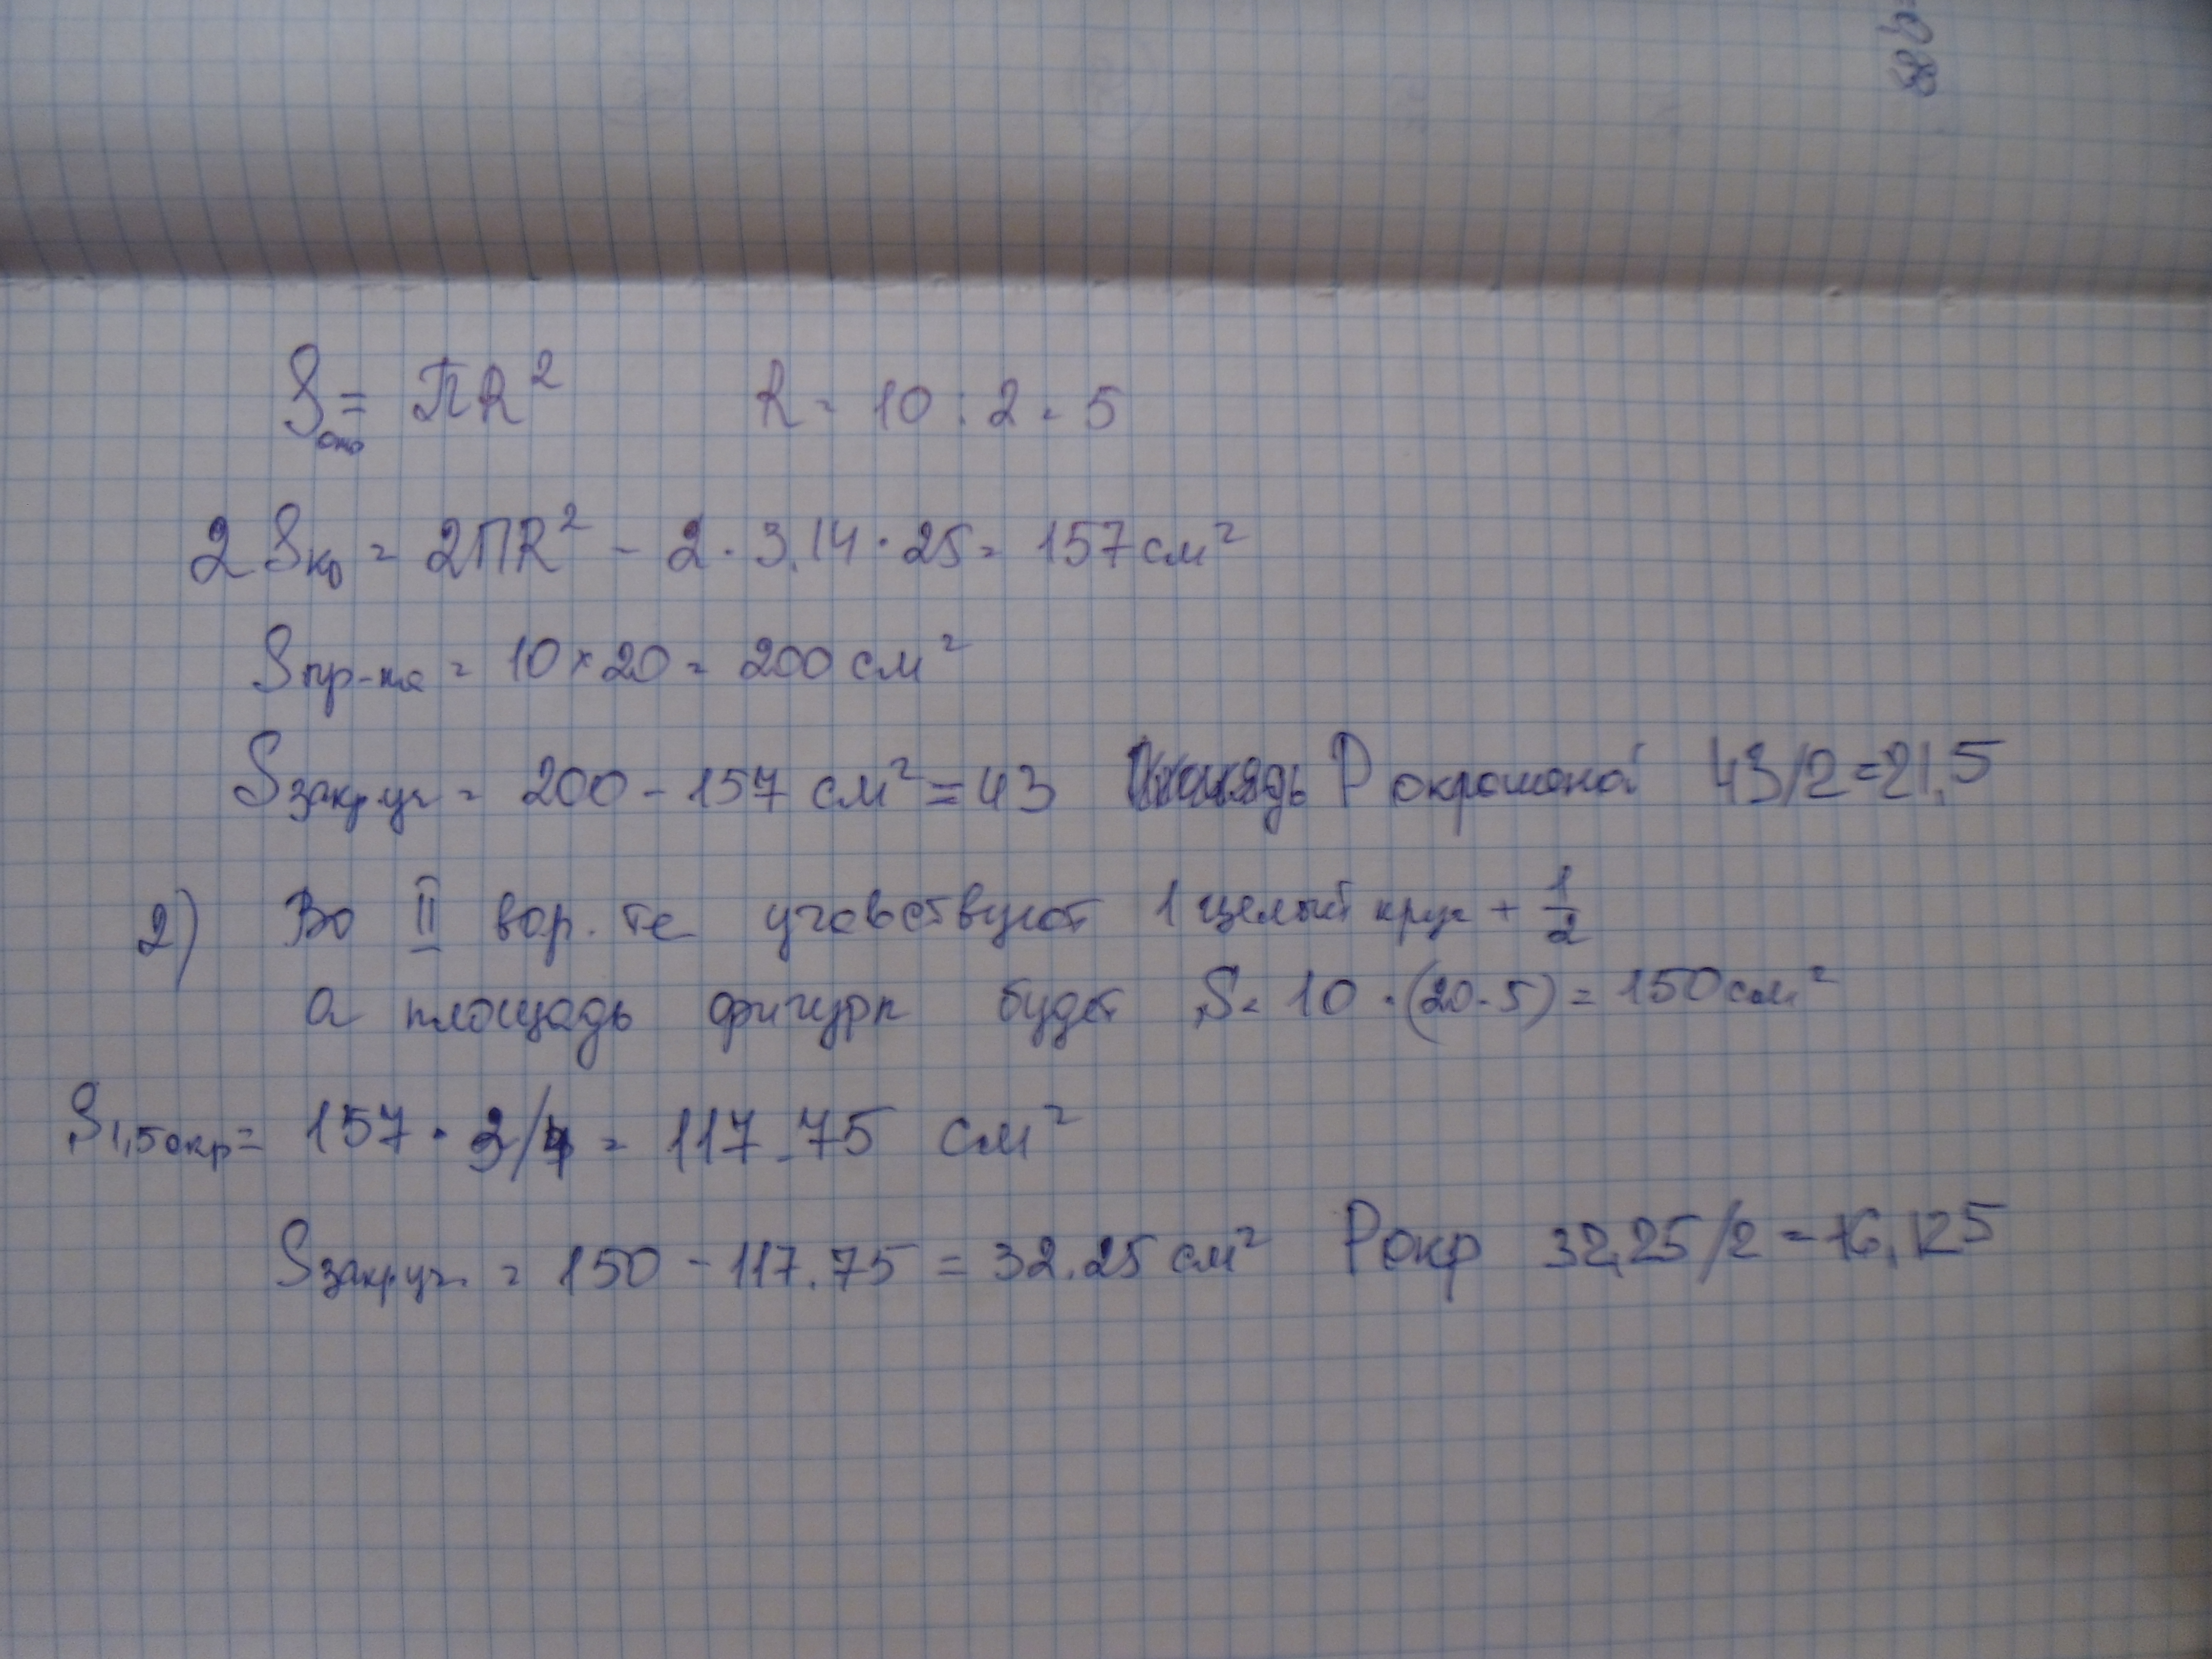 Sокр = ПR² R = 10 : 2 = 5
2 Sкр = 2ПR² - 2 · 3,14 · 25 = 157 см²
Sпр-ка = 10 × 20 = 200 см²
Sзакр.уч = 200 - 157 см² = 43 P окрошена 43/2=21,5
2) Во II вар. те учавствуют 1 целый круг + 1/2
а площадь фигуры будет S = 10 · (20-5) = 150 см²
S1,5окр = 157 · 3/4 = 117.75 см²
Sзакр.уч. = 150 - 117.75 = 32.25 см² Pокр 32,25/2 = 16,125